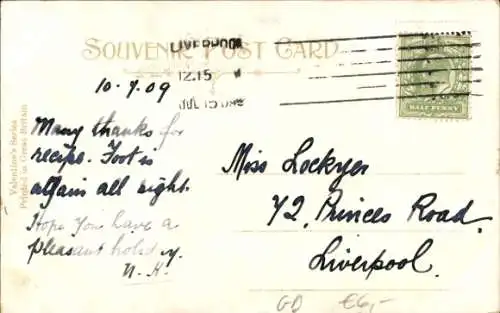 SOUVENIR POST CARD
LIVERPOOL
12.15
JUL 15 09
HALF PENNY
10·7·09
Many thanks for
recipe. Foot is
again all right.
Hope you have a
pleasant holiday.
N. H.
Miss Lockyer
72, Princes Road.
Liverpool.
Valentine's Series
Printed in Great Britain
GD €6,-